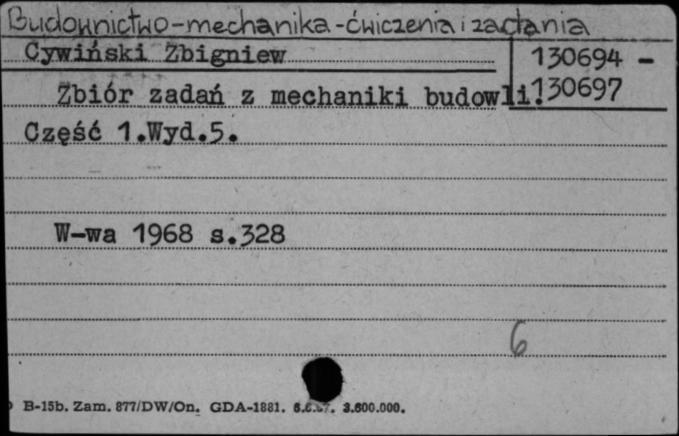 Budownictwo-mechanika-ćwiczenia i zadania
Cywiński Zbigniew
130694 -
130697
Zbiór zadań z mechaniki budowli.
Część 1.Wyd.5.
W-wa 1968 s.328
6
B-15b. Zam. 877/DW/On. GDA-1881. 3.600.000.